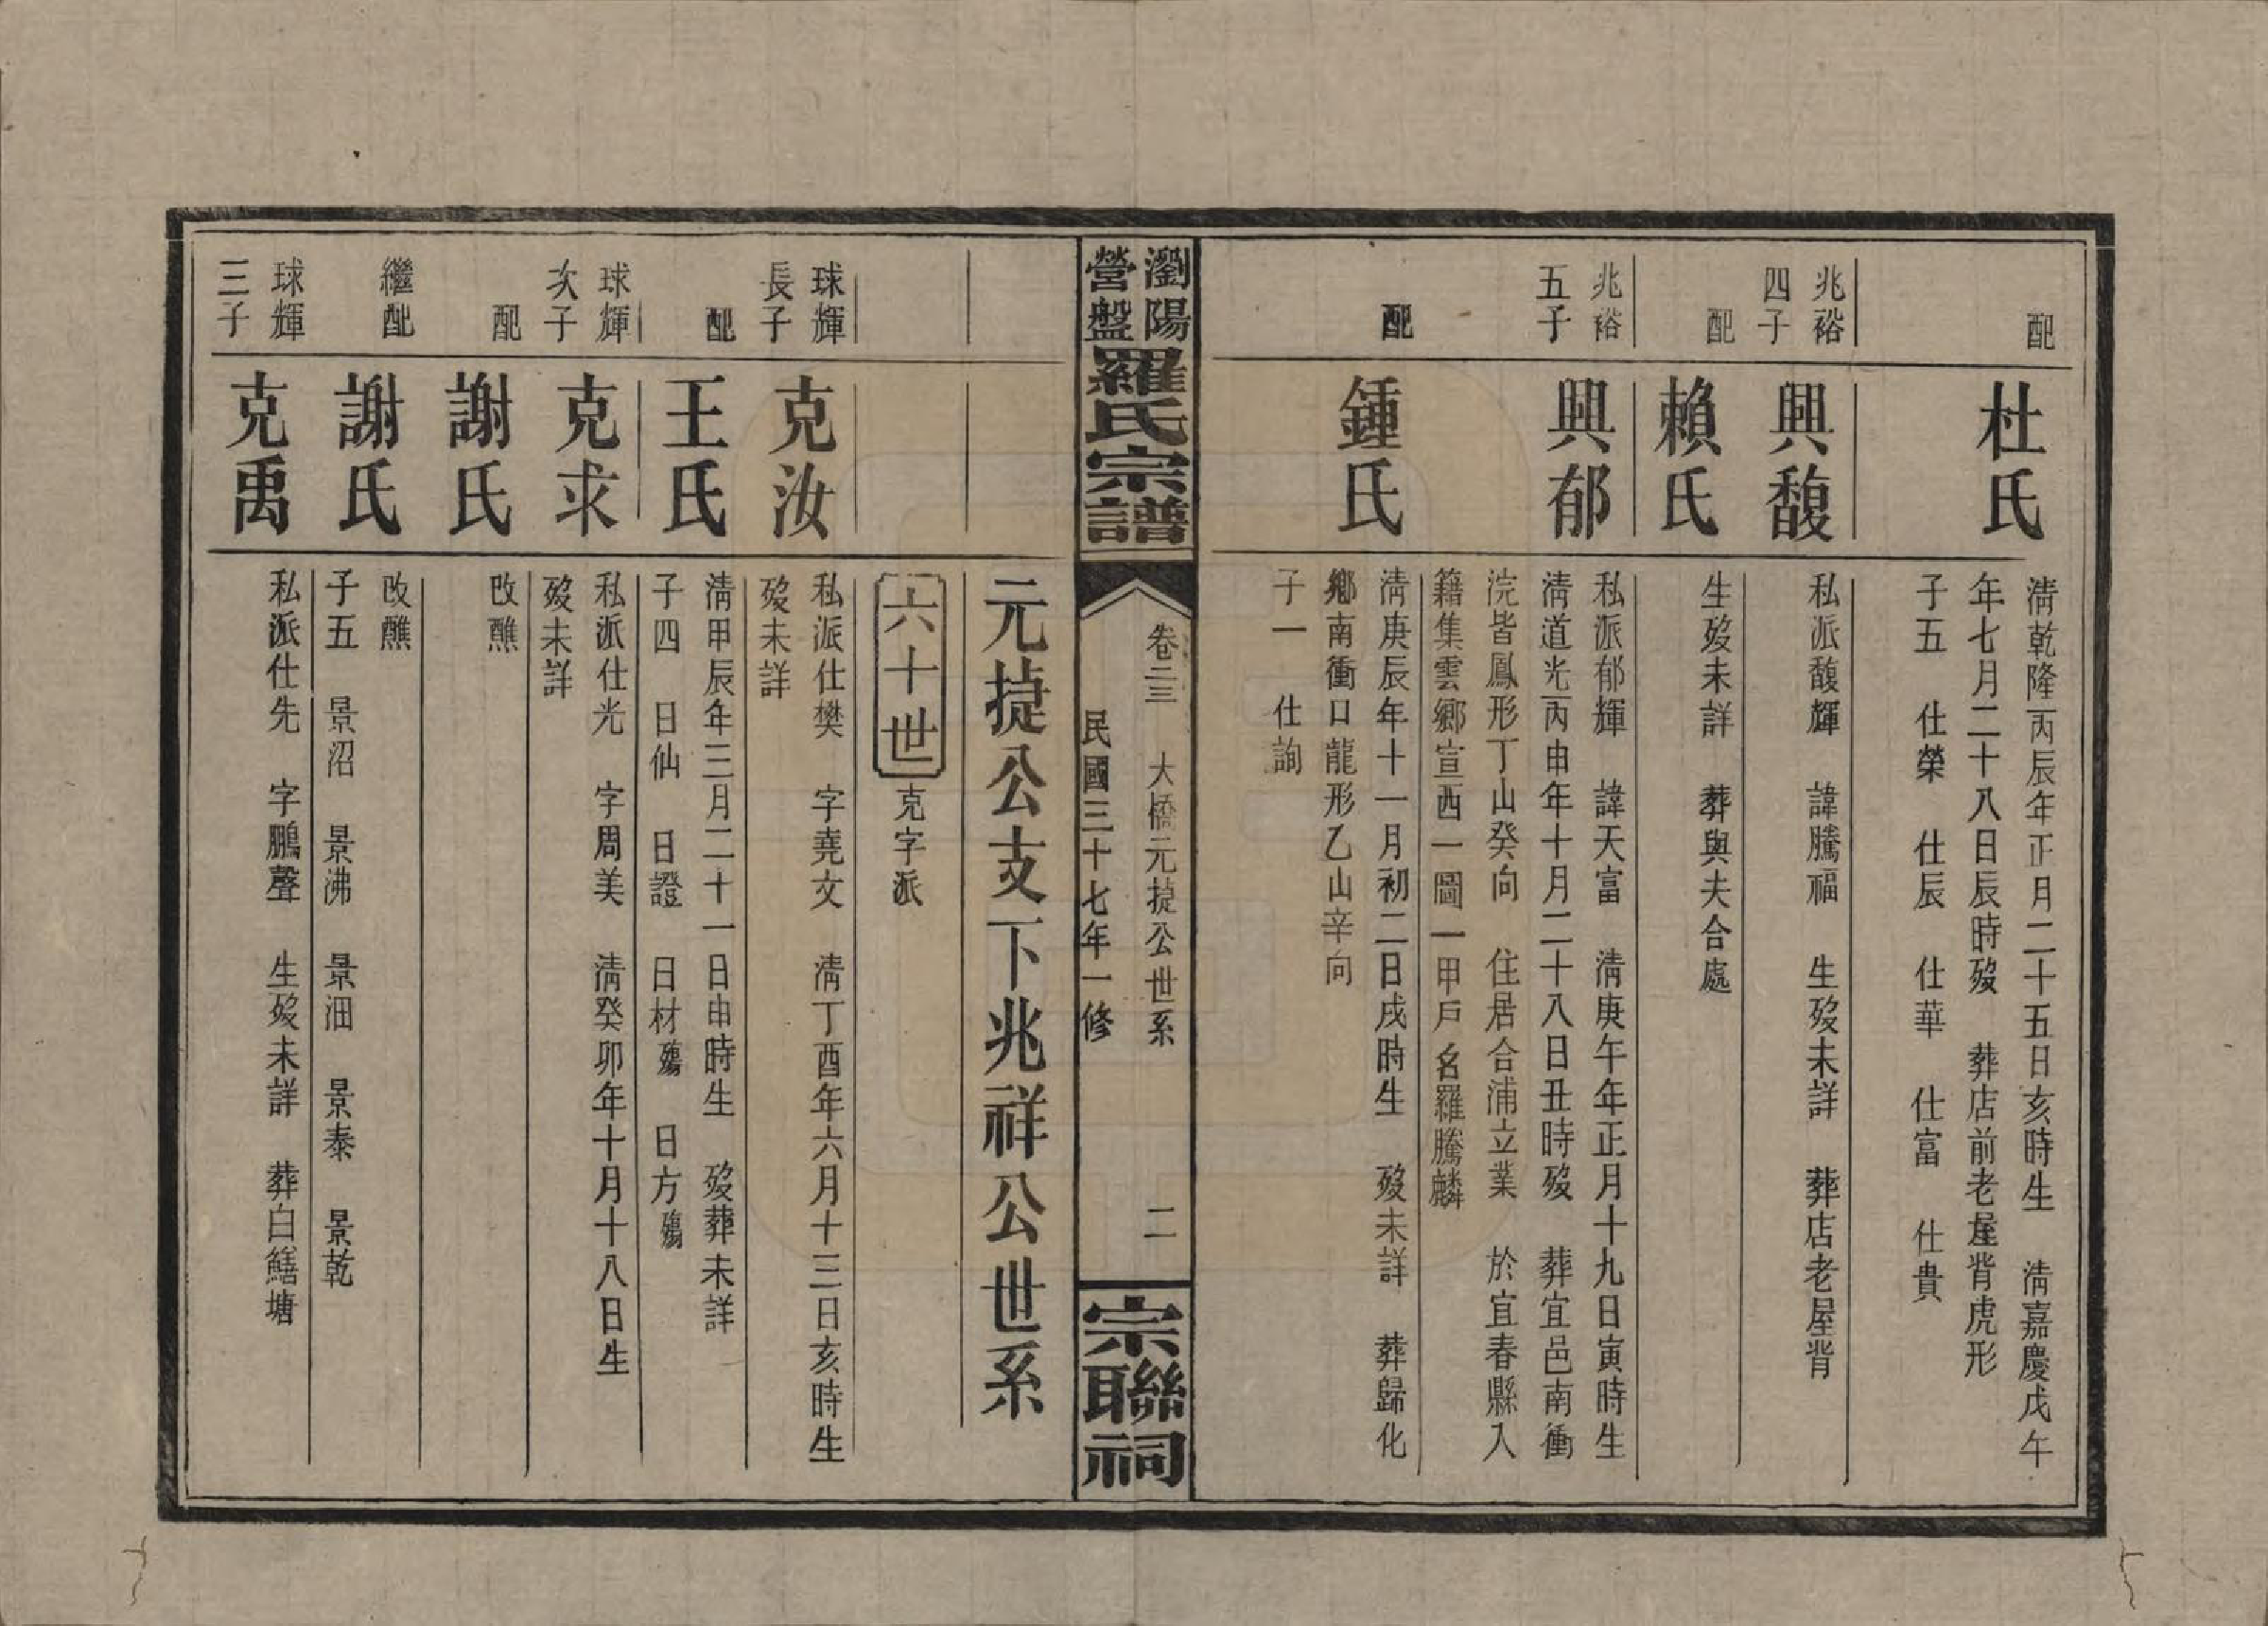 配
杜氏
清乾隆丙辰年正月二十五日亥時生 清嘉慶戊午
年七月二十八日辰時歿 葬店前老屋背虎形
子五 仕榮 仕辰 仕華 仕富 仕貴
兆裕
四子
興馥
私派馥輝 諱騰福 生歿未詳 葬店老屋背
配
賴氏
生歿未詳 葬與夫合處
兆裕
五子
興郁
私派郁輝 諱天富 清庚午年正月十九日寅時生
清道光丙申年十月二十八日丑時歿 葬宜邑南衝
浣皆鳳形丁山癸向 住居合浦立業 於宜春縣入
籍集雲鄉宣西一圖一甲戶名羅騰麟
配
鍾氏
清庚辰年十一月初二日戌時生 歿未詳 葬歸化
鄉南衝口龍形乙山辛向
子一 仕詢
瀏陽
營盤
羅氏宗譜
卷二三 大橋元㨗公世系 二
民國三十七年一修
宗聯祠
元㨗公支下兆祥公世系
六十世 克字派
球輝
長子
克汝
私派仕樊 字堯文 清丁酉年六月十三日亥時生
歿未詳
配
王氏
清甲辰年三月二十一日申時生 歿葬未詳
子四 日仙 日證 日材殤 日方殤
球輝
次子
克求
私派仕光 字周美 清癸卯年十月十八日生
歿未詳
配
謝氏
改醮
繼配
謝氏
改醮
子五 景沼 景沸 景沺 景泰 景乾
球輝
三子
克禹
私派仕先 字鵬聲 生歿未詳 葬白鱔塘